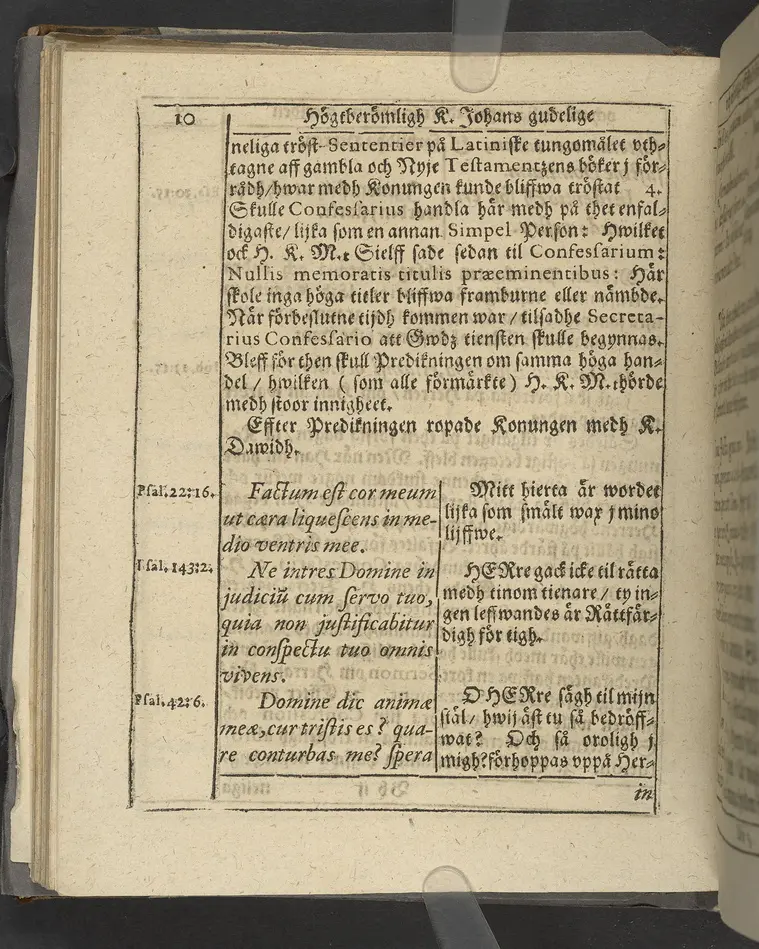 10
Högtberömligh K. Johans gudelige
neliga tröst- Sententier på Latiniske tungomålet vth-
tagne aff gambla och Nyje Testamentzens böker j för-
rådh/hwar medh Konungen kunde bliffwa tröstat 4.
Skulle Confessarius handla här medh på thet enfal-
digaste/ lijka som en annan Simpel Person: Hwilket
ock H. K. M.t Sielff sade sedan til Confessarium:
Nullis memoratis titulis præeminentibus: Här
skole inga höga titler bliffwa framburne eller nämbde.
När förbeslutne tijdh kommen war / tilsadhe Secreta-
rius Confessario att Gwdz tiensten skulle begynnas.
Bleff för then skull Predikningen om samma höga han-
del / hwilken ( som alle förmärkte) H. K. M.t hörde
medh stoor innigheet.
Effter Predikningen ropade Konungen medh K.
Dawidh.
Psal.22:16.
Factum est cor meum
ut cæra liquescens in me-
dio ventris mee.
Mitt hierta är wordet
lijka som smält wax j mino
lijffwe.
Psal.143:2.
Ne intres Domine in
judiciũ cum servo tuo,
quia non justificabitur
in conspectu tuo omnis
vivens.
HERre gack icke til rätta
medh tinom tienare / ty in-
gen leffwandes är Rättfär-
digh för tigh.
Psal.42:6.
Domine dic animæ
meæ, cur tristis es? qua-
re conturbas me? spera
O HERre sägh til mijn
siäl/ hwij äst tu så bedröff-
wat? Och så oroligh j
migh? förhoppas vppå Her-
in